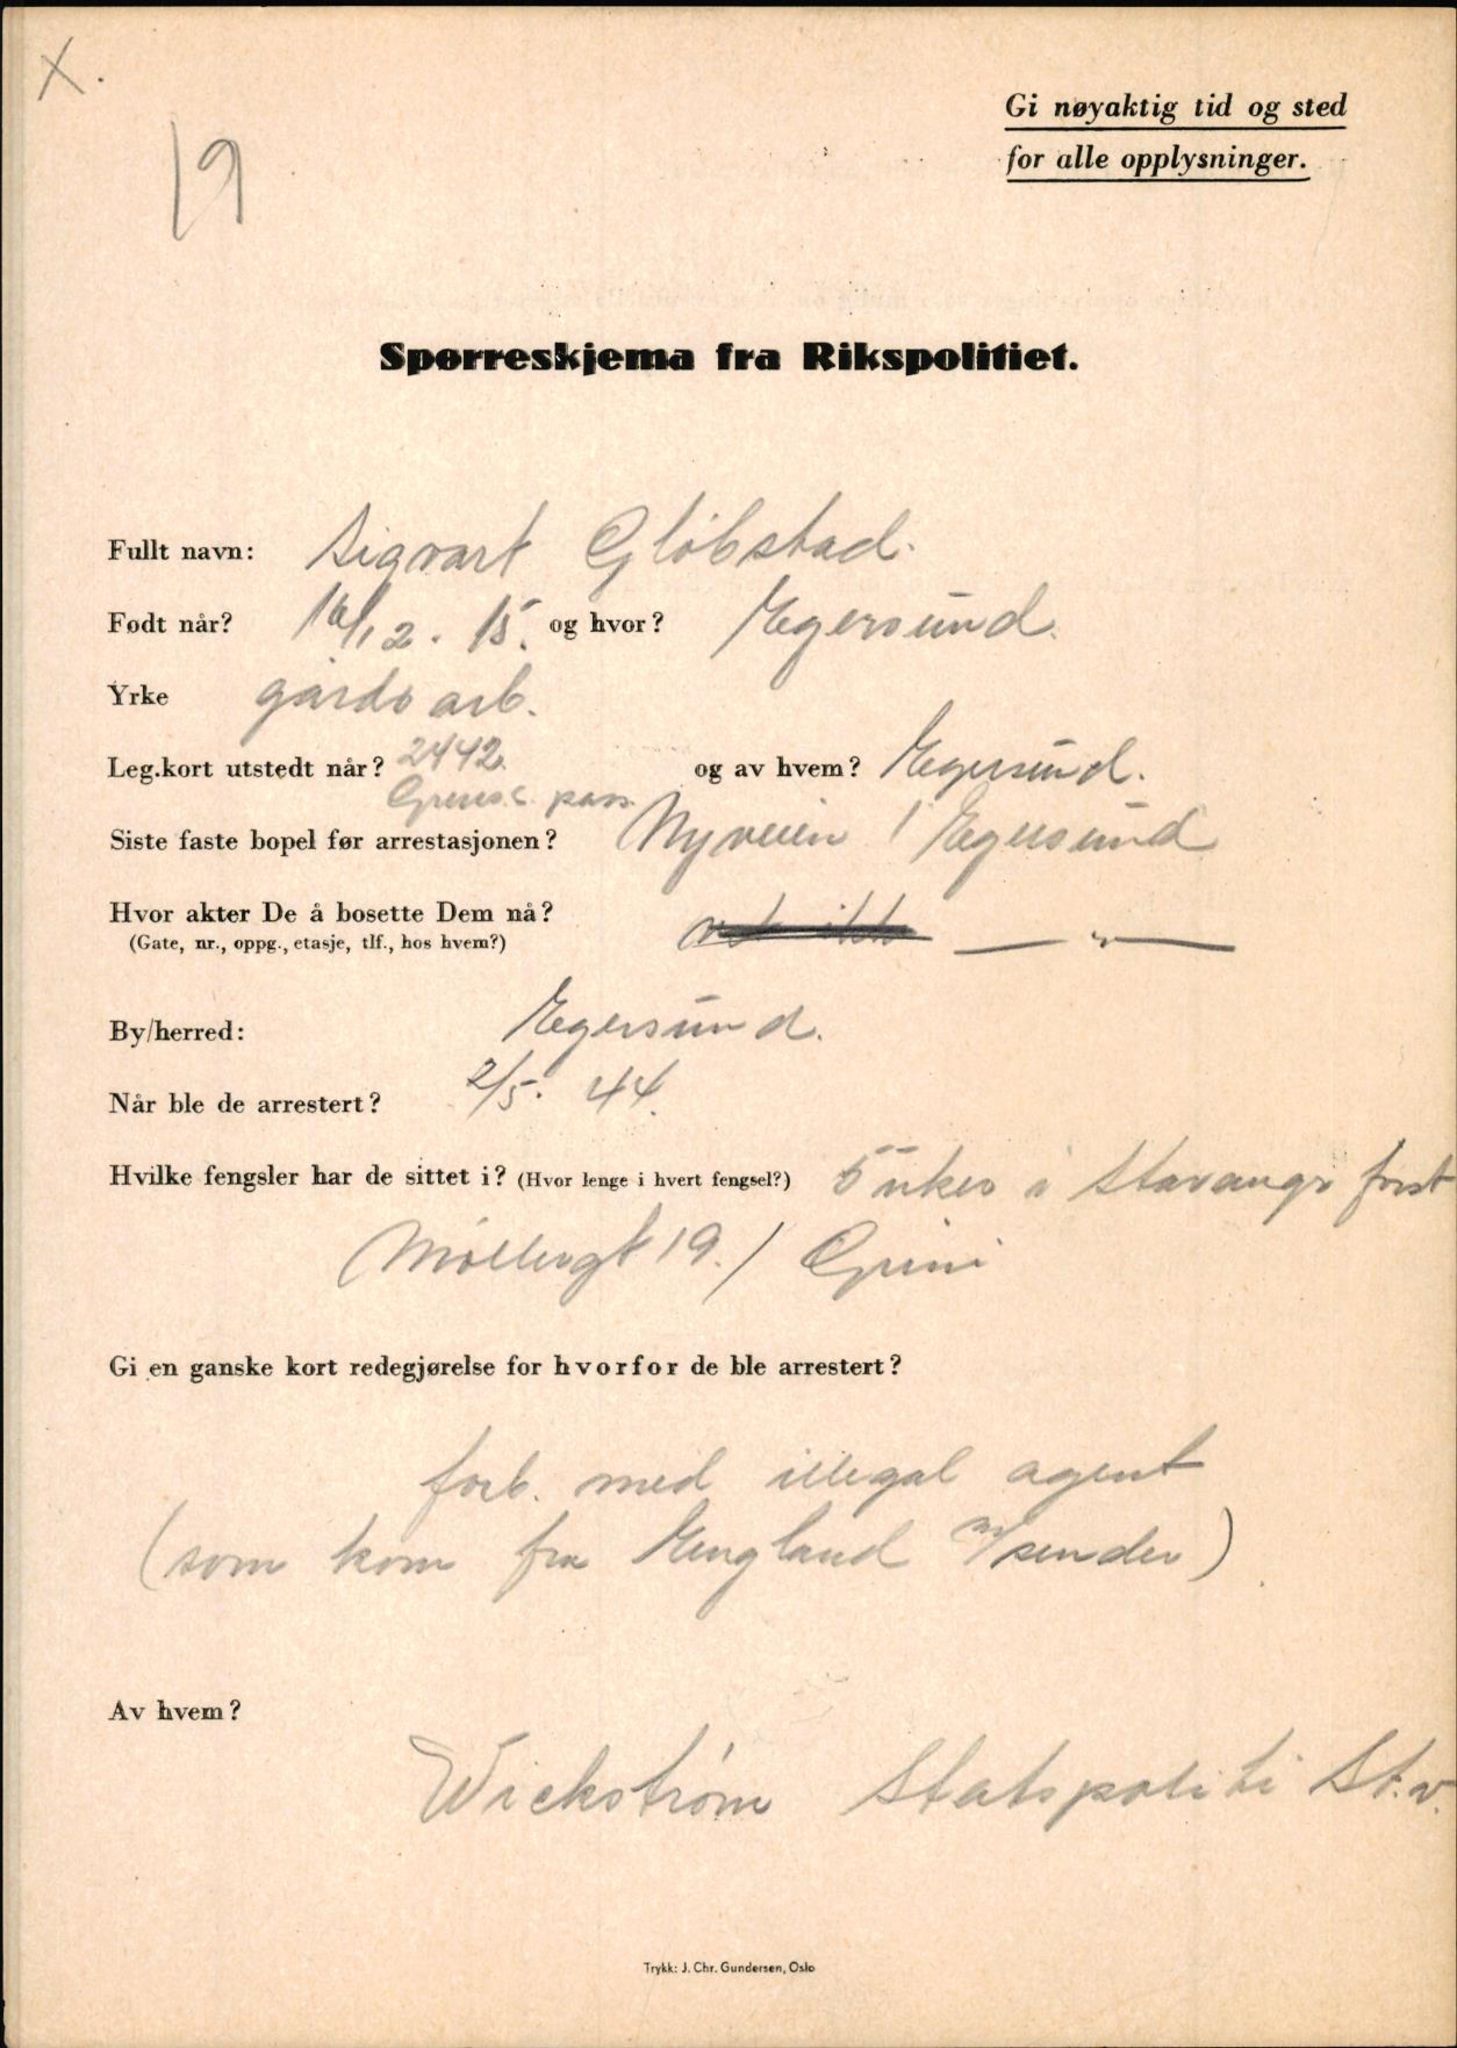 X.
19
Gi nøyaktig tid og sted
for alle opplysninger.
Spørreskjema fra Rikspolitiet.
Fullt navn: Sigvart Gløbstad.
Født når? 16/12. 15. og hvor? Egersund.
Yrke gårds arb.
Leg.kort utstedt når? 2442. og av hvem? Egersund.
Grense pass.
Siste faste bopel før arrestasjonen? Nyveien / Egersund
Hvor akter De å bosette Dem nå? vet ikke — " —
(Gate, nr., oppg., etasje, tlf., hos hvem?)
By/herred: Egersund.
Når ble de arrestert? 2/5. 44.
Hvilke fengsler har de sittet i? (Hvor lenge i hvert fengsel?) 5 uker i Stavanger først
(Møllergt 19.) Grini
Gi en ganske kort redegjørelse for hvorfor de ble arrestert?
forb. med illegal agent
(som kom fra England m/sender)
Av hvem?
Wickstrøm Statspoliti St.v.
Trykk: J. Chr. Gundersen, Oslo